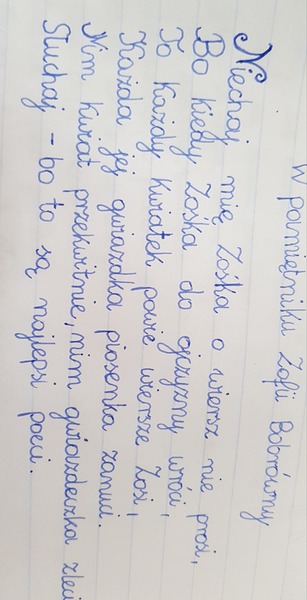 W pamiętniku Zofii Bobrówny
Niechaj mię Zośka o wiersze nie prosi,
Bo kiedy Zośka do ojczyzny wróci,
To każdy kwiatek powie wiersze Zosi,
Każda jej gwiazdka piosenkę zanuci.
Nim kwiat przekwitnie, nim gwiazdeczka zleci
Słuchaj - bo to są najlepsi poeci.